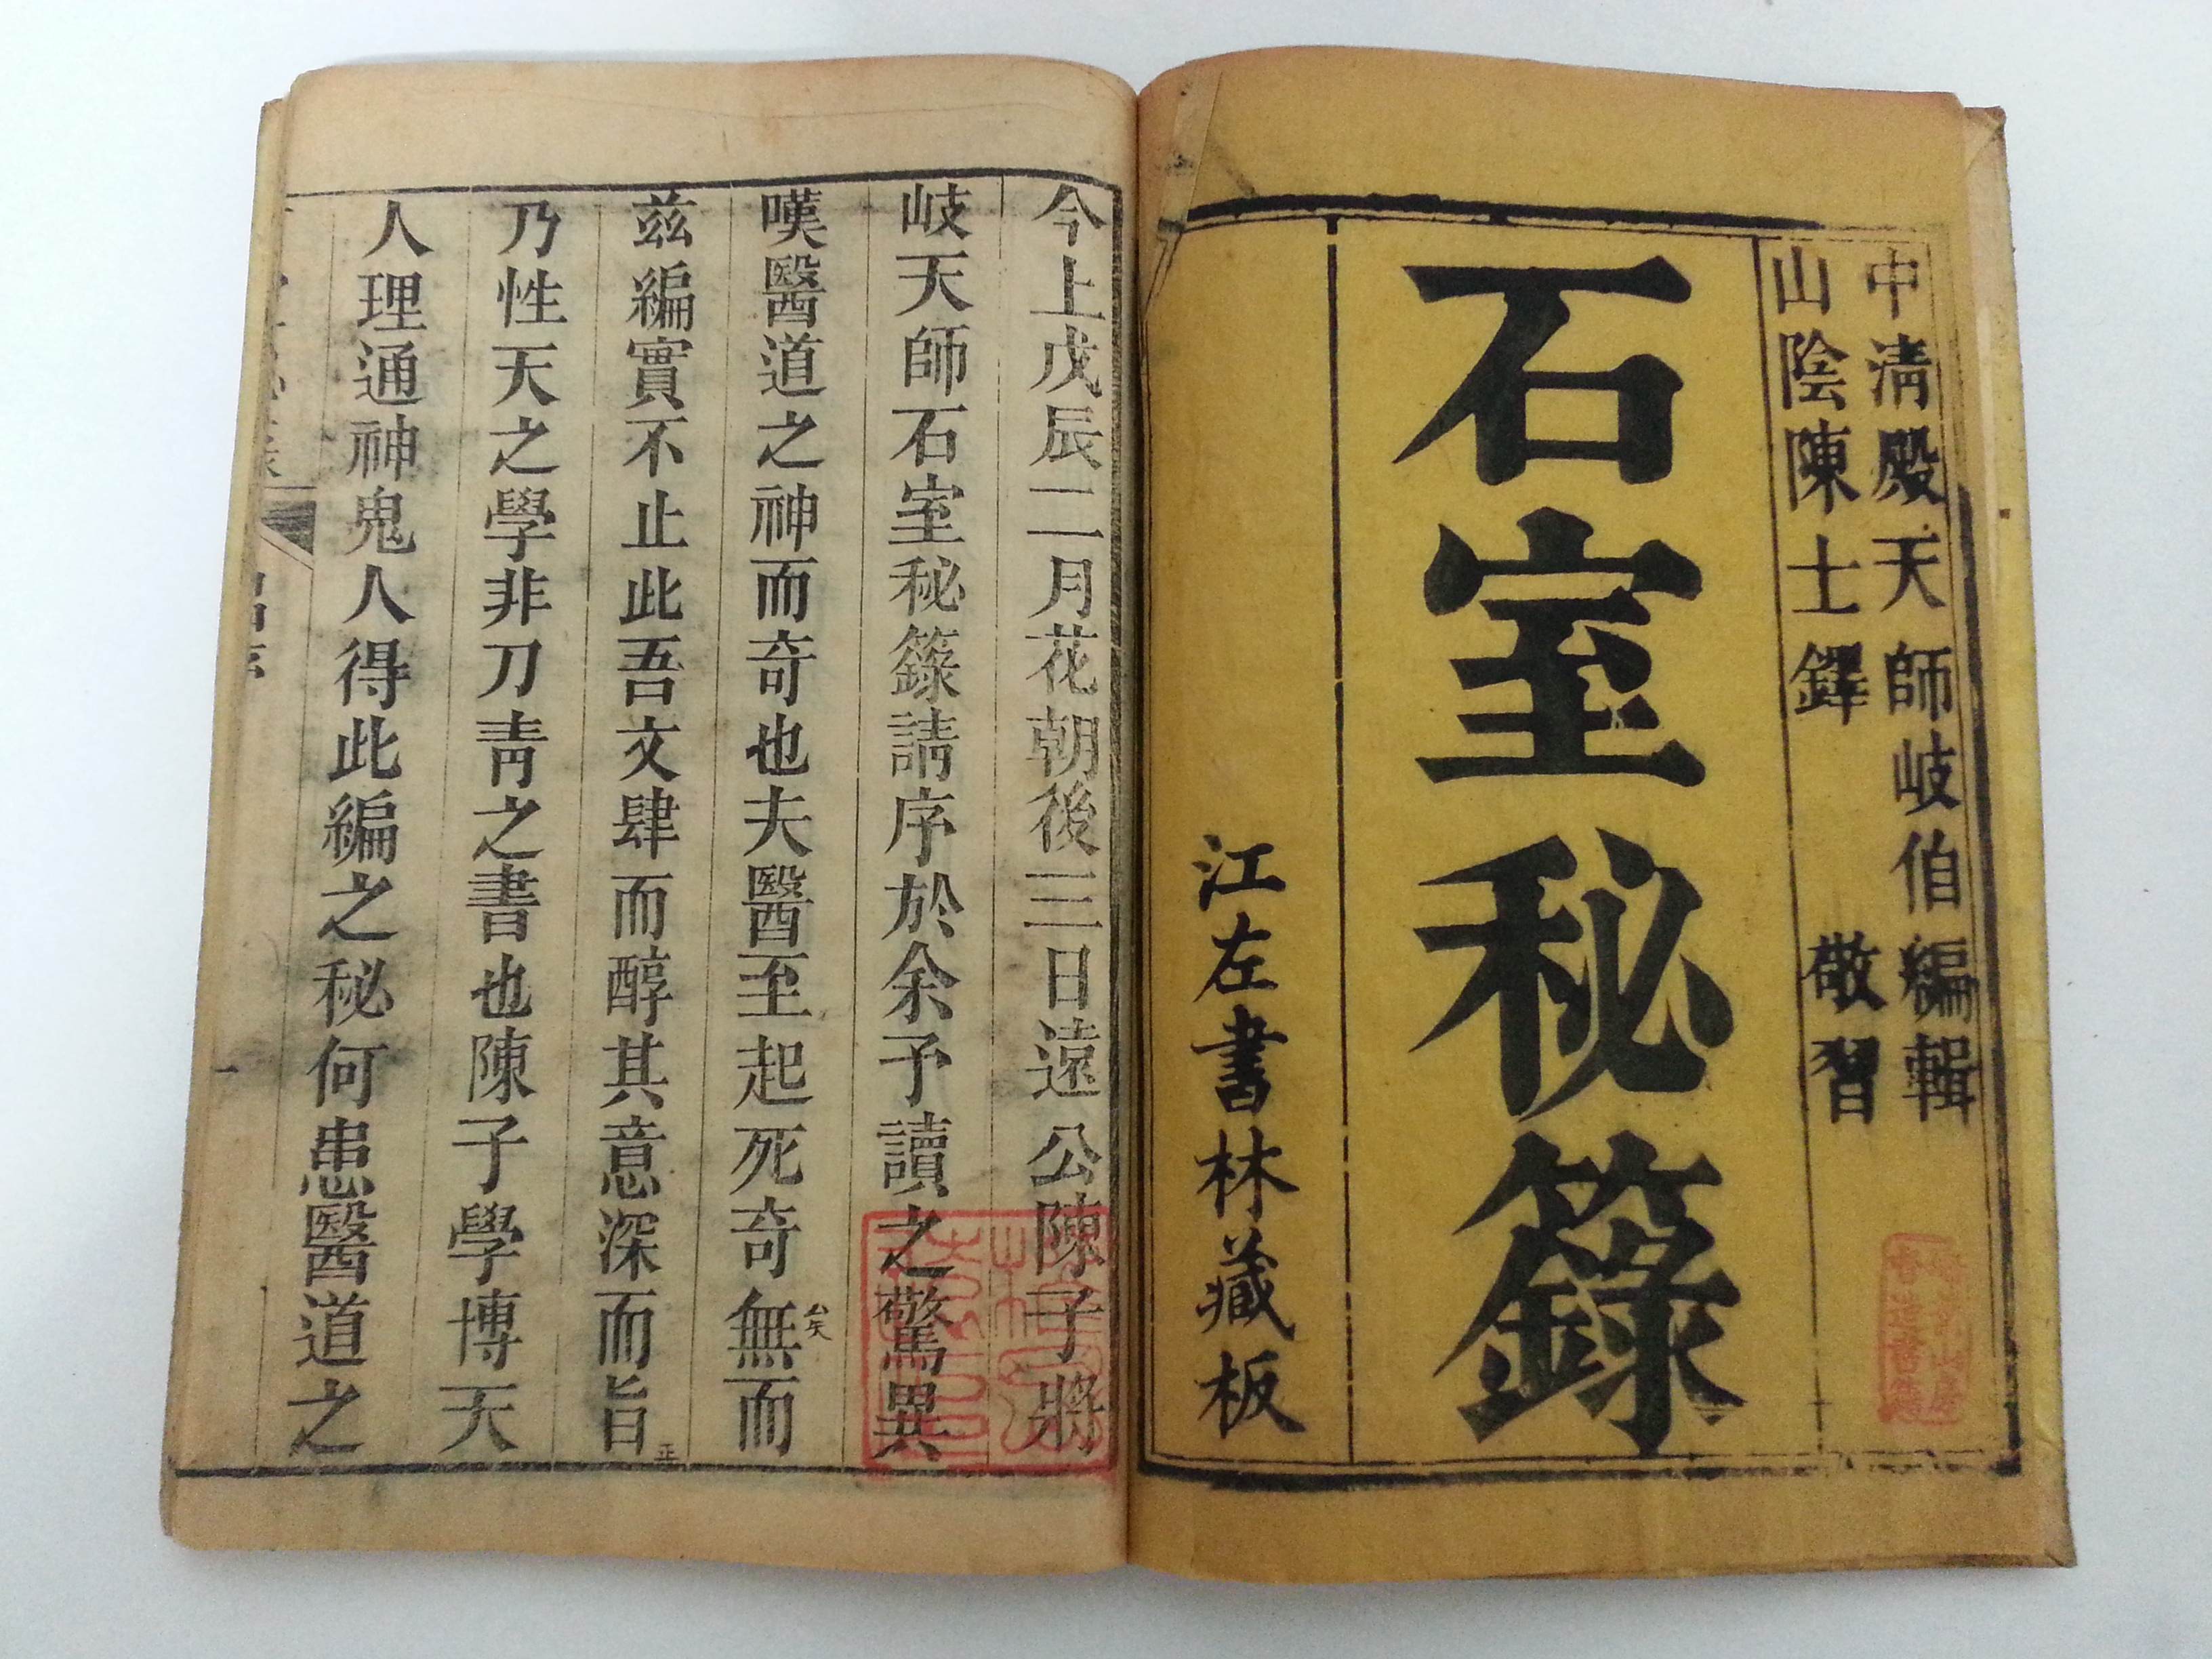 中清殿天師岐伯編輯
山陰陳士鐸 敬習
石室秘籙
江左書林藏板
今上戊辰二月花朝後三日遠公陳子將
岐天師石室秘籙請序於余予讀之驚異
嘆醫道之神而奇也夫醫至起死奇無而
矣
茲編實不止此吾文肆而醇其意深而旨
正
乃性天之學非刀青之書也陳子學博天
人理通神鬼人得此編之秘何患醫道之